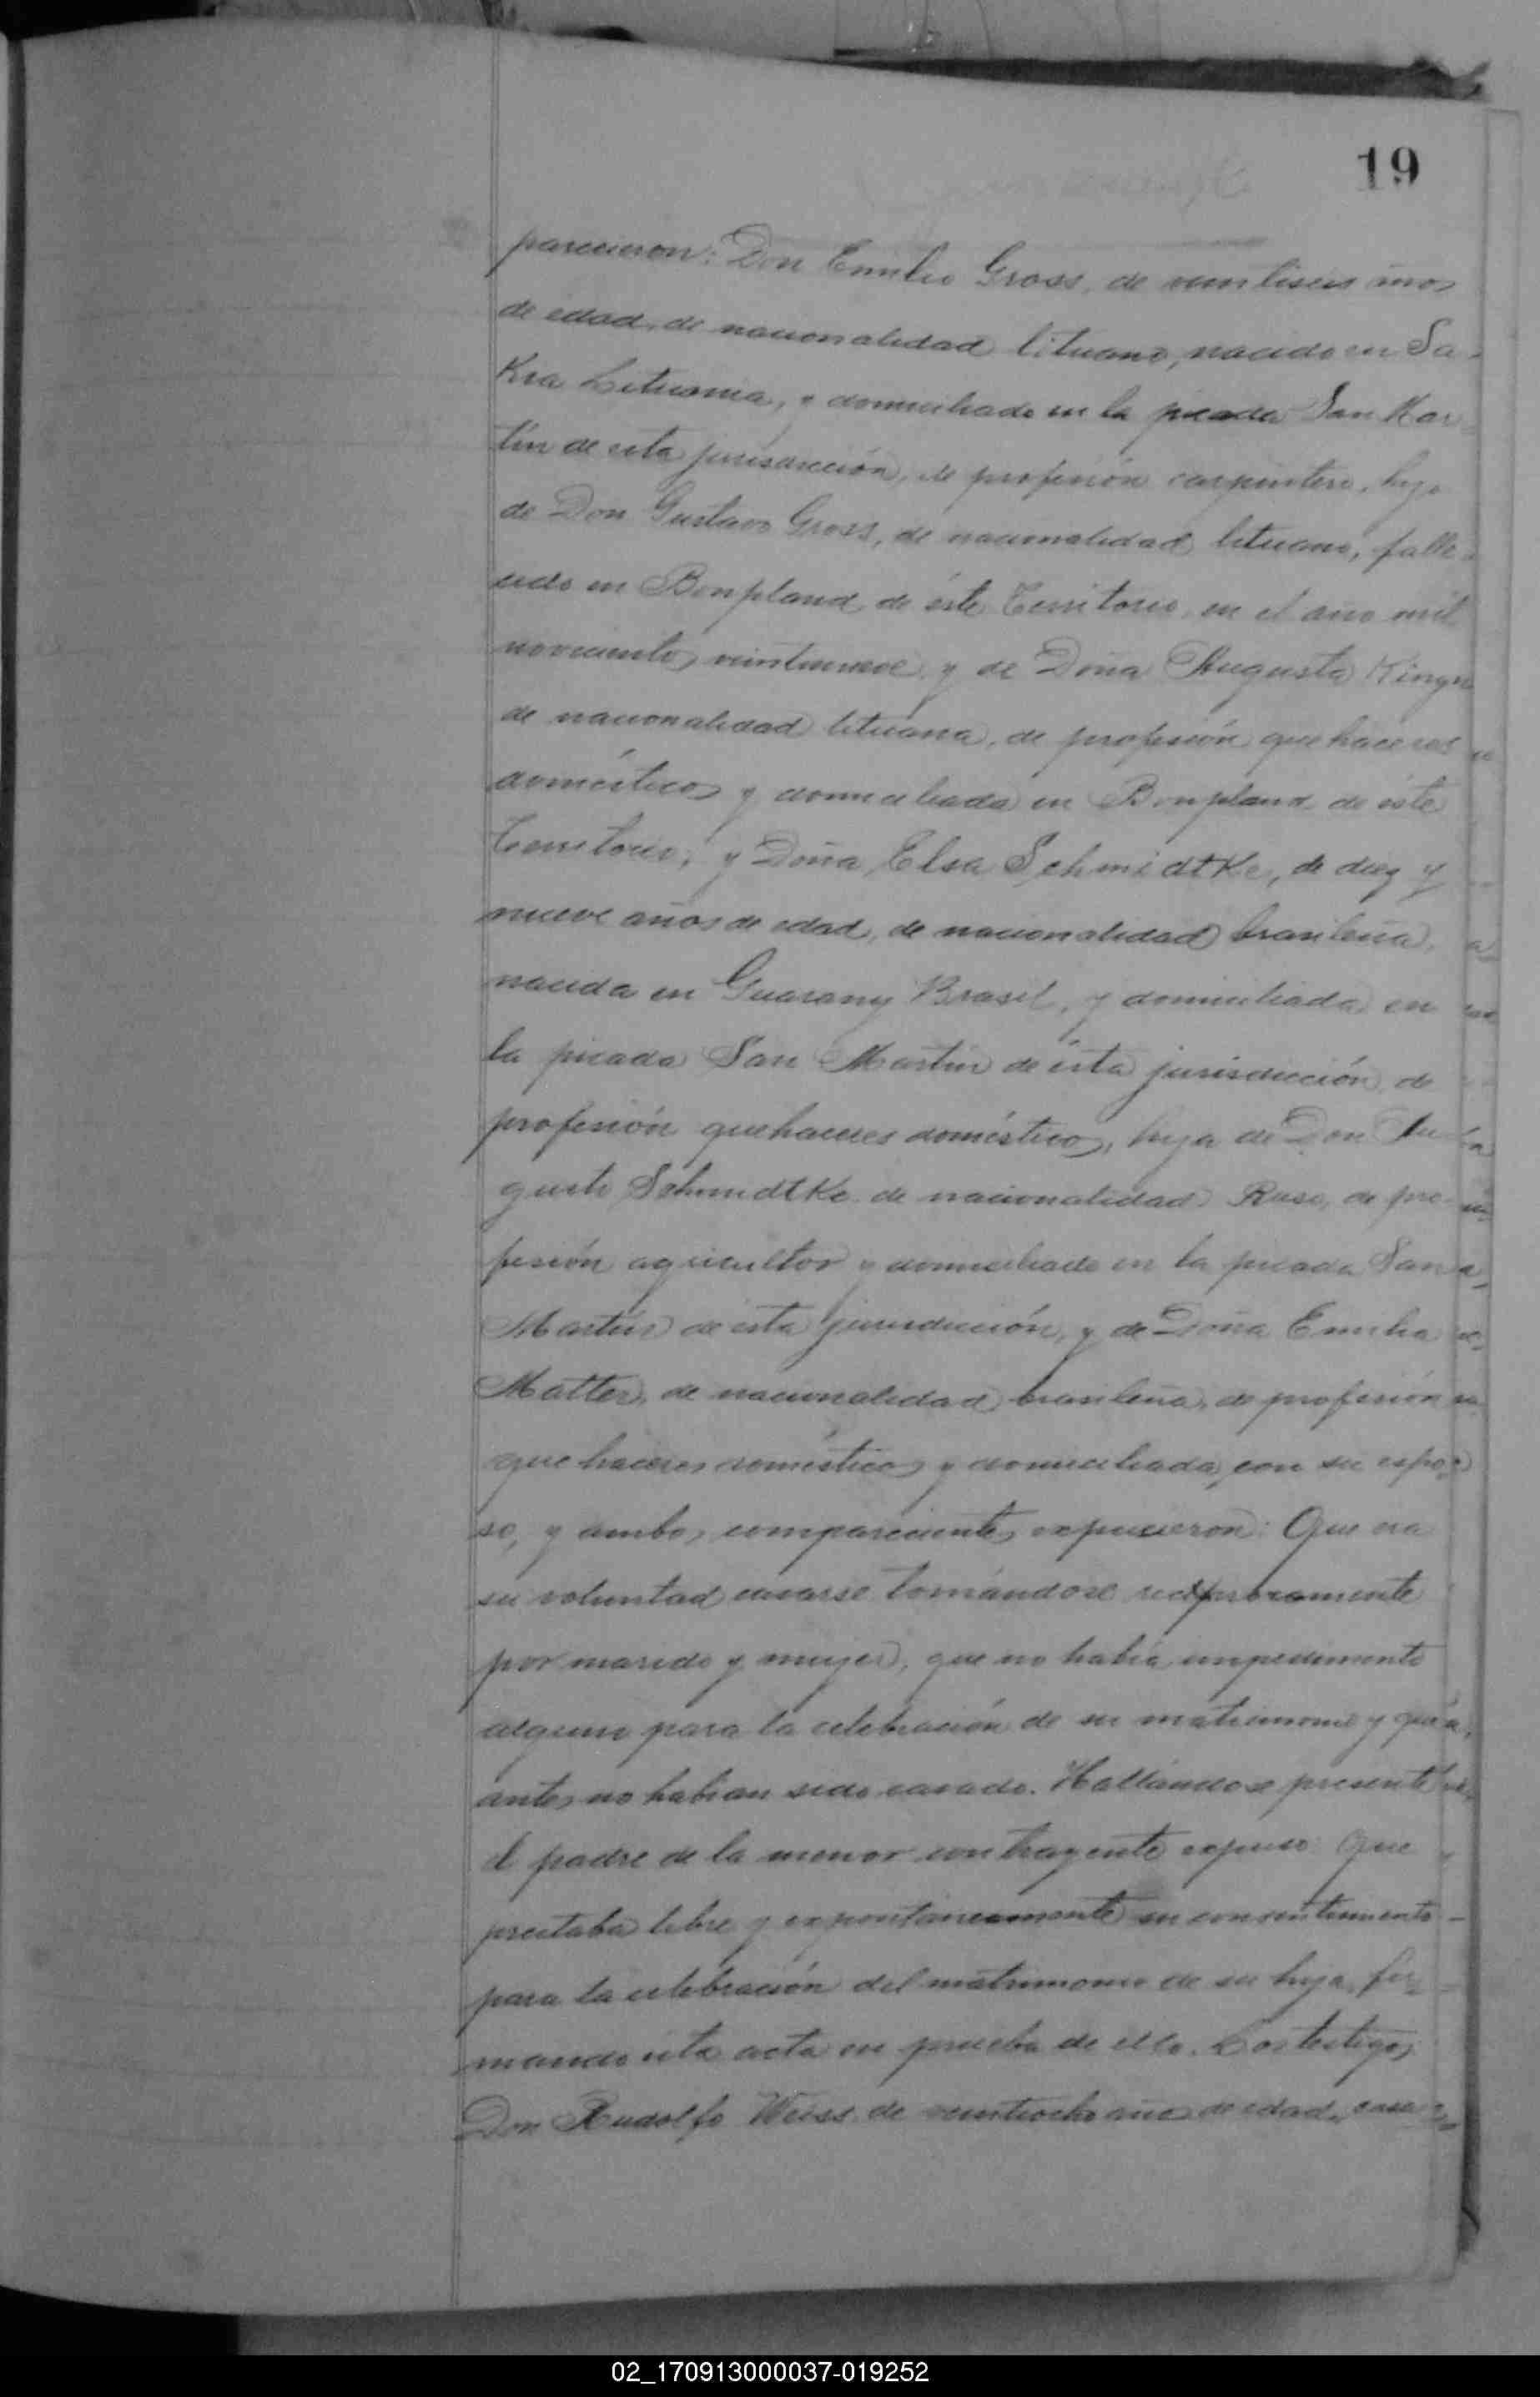 19
parecieron: Don Emilio Gross, de veintiseis años
de edad, de nacionalidad lituano, nacido en Sa-
Kra Lituania, y domiciliado en la picada San Mar-
tín de esta jurisdicción, de profesión carpintero, hijo
de Don Gustavo Gross, de nacionalidad lituano, falle-
cido en Bonpland de éste Territorio, en el año mil
novecientos veintinueve y de Doña Augusta
de nacionalidad lituana, de profesión quehaceres
domésticos y domiciliada en Bonpland de éste
Territorio; y Doña Elsa Schmidtke, de diez y
nueve años de edad, de nacionalidad brasileña,
nacida en Guarany Brasil, y domiciliada en
la picada San Martín de ésta jurisdicción, de
profesión quehaceres domésticos, hija de Don Au-
gusto Schmidtke de nacionalidad Ruso, de pro-
fesión agricultor y domiciliado en la picada San
Martín de esta jurisdicción, y de Doña Emilia
Matter, de nacionalidad brasileña, de profesión
quehaceres domésticos y domiciliada con su espo-
so, y ambos comparecientes expusieron: Que era
su voluntad casarse tomándose reciprocamente
por marido y mujer, que no había impedimento
alguno para la celebración de su matrimonio y que
antes no habian sido casado. Hallándose presente
el padre de la menor contrayente expuso: Que
prestaba libre y expontaneamente su consentimiento
para la celebración del matrimonio de su hija, fir-
mando esta acta en prueba de ello. Los testigos
Don Rudolfo Weiss de veintiocho años de edad, casa-
02_170913000037-019252